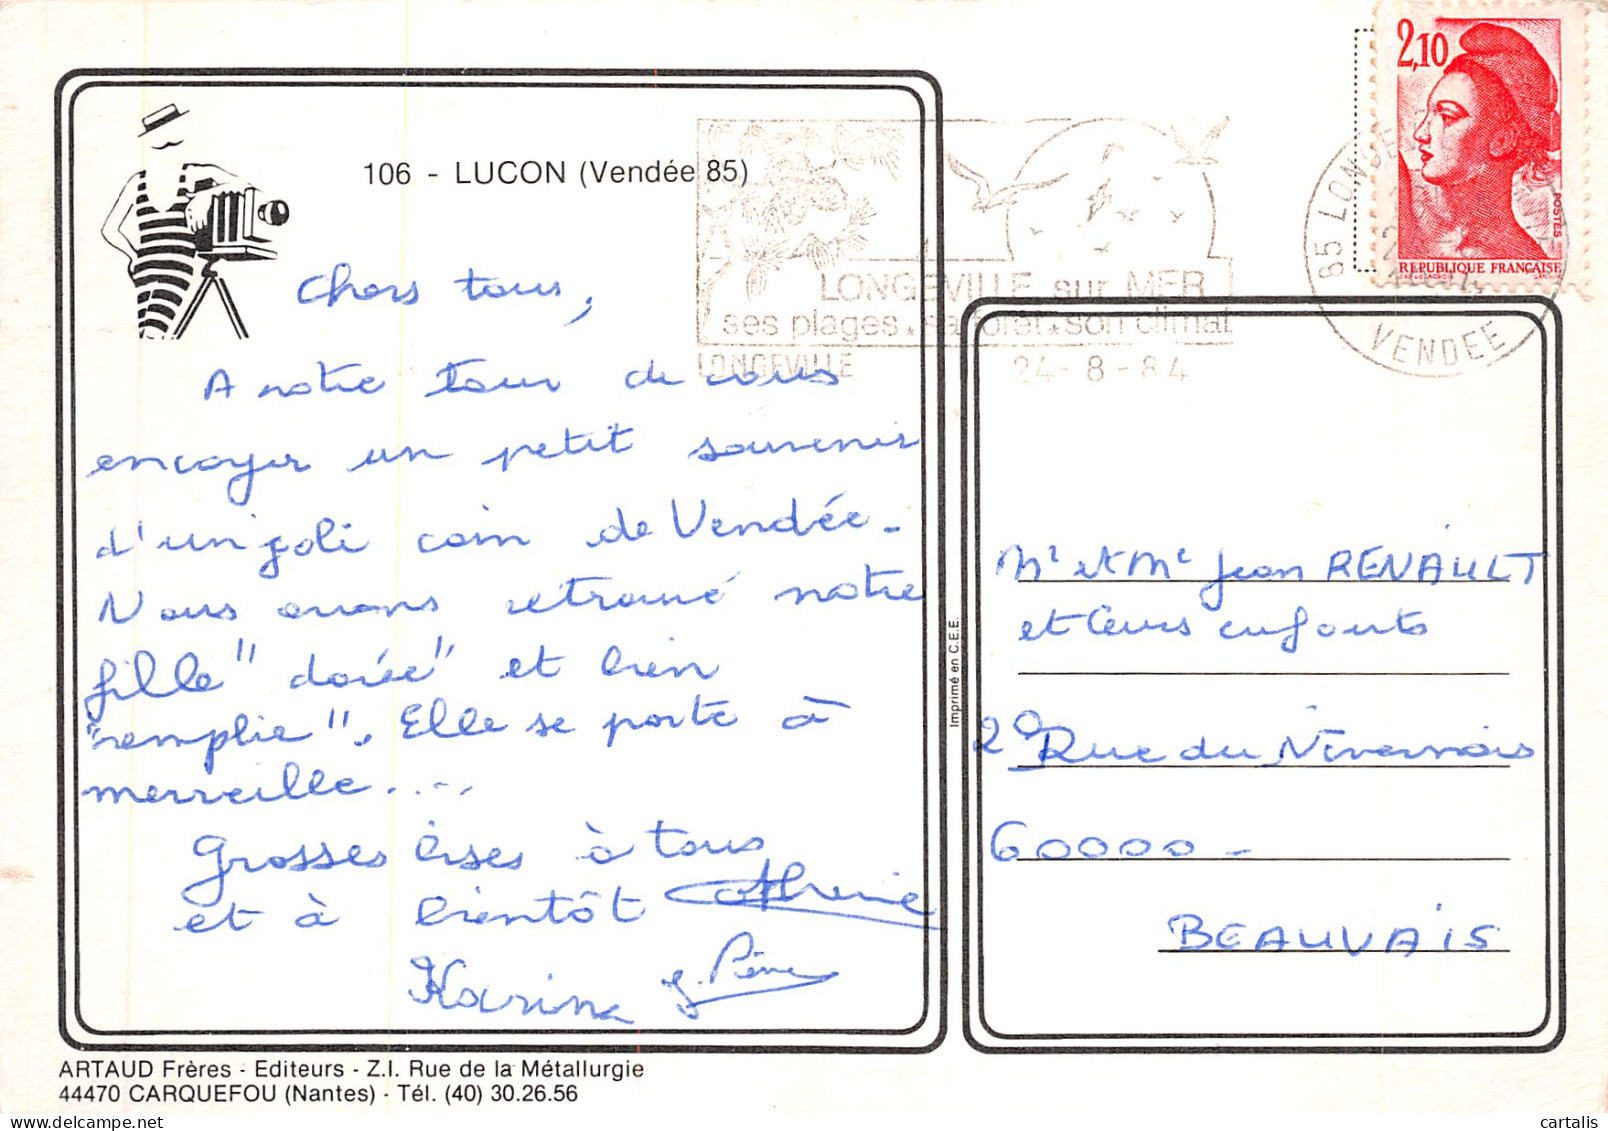 106 - LUCON (Vendée 85)
Chers tous,
A notre tour de vous
envoyer un petit souvenir
d'un joli coin de Vendée.
Nous avons retrouvé notre
fille "dorée" et bien
"remplie". Elle se porte à
merveille....
Grosses bises à tous
et à bientôt Catherine
Karina J. Pierre
ARTAUD Frères - Editeurs - Z.I. Rue de la Métallurgie
44470 CARQUEFOU (Nantes) - Tél. (40) 30.26.56
Imprimé en C.E.E.
LONGEVILLE sur MER
ses plages. sa forêt. son climat
LONGEVILLE
24-8-84
85 LONGEVILLE
VENDEE
2,10
POSTES
REPUBLIQUE FRANÇAISE
Mr et Me Jean RENAULT
et leurs enfants
20 Rue du Nivernais
60000 -
BEAUVAIS
cartalis